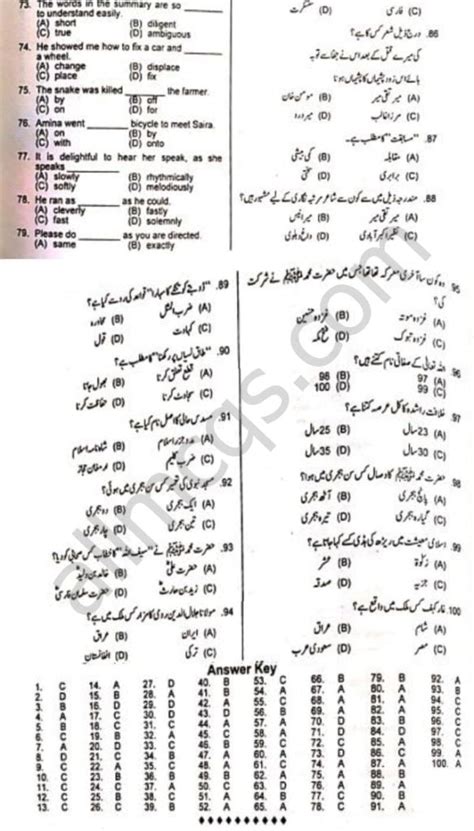 73. The words in the summary are so ____ to understand easily.
(A) short (B) diligent
(C) true (D) ambiguous
74. He showed me how to fix a car and ____ a wheel.
(A) change (B) displace
(C) place (D) fix
75. The snake was killed ____ the farmer.
(A) by (B) off
(C) on (D) for
76. Amina went ____ bicycle to meet Saira.
(A) on (B) by
(C) with (D) onto
77. It is delightful to hear her speak, as she speaks ____
(A) slowly (B) rhythmically
(C) softly (D) melodiously
78. He ran as ____ as he could.
(A) cleverly (B) fastly
(C) fast (D) solemnly
79. Please do ____ as you are directed.
(A) same (B) exactly
(C) فارسی (D) سنسکرت
86. درج ذیل شعر کس کا ہے؟
کی میرے قتل کے بعد اس نے جفا سے توبہ
ہائے اس زود پشیماں کا پشیماں ہونا
(A) میر تقی میر (B) مومن خان
(C) مرزا غالب (D) میر درد
87. "مسابقت" کا مطلب ہے۔
(A) مقابلہ (B) کمی بیشی
(C) برابری (D)
88. مندرجہ ذیل میں سے کون سے شاعر مرثیہ نگاری کے لیے مشہور ہیں؟
(A) میر تقی میر (B) میر انیس
(C) نظیر اکبر آبادی (D) داغ دہلوی
89. "ڈوبتے کو تنکے کا سہارا" قواعد کی رو سے کیا ہے؟
(A) ضرب المثل (B) محاورہ
(C) کہاوت (D) قول
90. "طاق نسیاں پر رکھنا" کا مطلب ہے؟
(A) قطع تعلق کرنا (B) بھول جانا
(C) سجاوٹ کرنا (D) حفاظت کرنا
91. مسدس حالی کا اصل نام کیا ہے؟
(A) مدوجزر اسلام (B) شاہنامہ اسلام
(C) ضرب کلیم (D) ارمغان حجاز
92. مسجد نبوی کی تعمیر کس سن ہجری میں ہوئی؟
(A) ایک ہجری (B) دو ہجری
(C) تین ہجری (D) چار ہجری
93. حضرت محمد ﷺ نے "سیف اللہ" کا خطاب کس صحابی کو دیا؟
(A) حضرت علیؓ (B) خالد بن ولید
(C) زید بن حارثؓ (D) حضرت سلمان فارسیؓ
94. مولانا جلال الدین رومی کا مزار کس ملک میں ہے؟
(A) ایران (B) عراق
(C) ترکی (D) افغانستان
95. وہ کون سا آخری معرکہ تھا جس میں حضرت محمد ﷺ نے شرکت کی؟
(A) غزوہ موتہ (B) غزوہ حنین
(C) غزوہ تبوک (D) فتح مکہ
96. اللہ تعالیٰ کے صفاتی نام کتنے ہیں؟
(A) 97 (B) 98
(C) 99 (D) 100
97. خلافت راشدہ کا کل عرصہ کتنا ہے؟
(A) 23 سال (B) 25 سال
(C) 30 سال (D) 35 سال
98. حضرت محمد ﷺ کا وصال کس سن ہجری میں ہوا؟
(A) پانچ ہجری (B) آٹھ ہجری
(C) گیارہ ہجری (D) تیرہ ہجری
99. اسلامی معیشت میں ریڑھ کی ہڈی کسے کہا جاتا ہے؟
(A) زکوٰۃ (B) عشر
(C) جزیہ (D) صدقہ
100. غار کہف کس ملک میں واقع ہے؟
(A) شام (B) عراق
(C) مصر (D) سعودی عرب
allmcqs.com
Answer Key
1. C 14. A 27. D 40. B 53. C 66. B 79. B 92. A
2. D 15. B 28. A 41. B 54. A 67. A 80. A 93. B
3. B 16. D 29. D 42. A 55. A 68. B 81. A 94. C
4. A 17. C 30. D 43. D 56. B 69. A 82. A 95. C
5. B 18. C 31. C 44. A 57. A 70. D 83. B 96. C
6. C 19. B 32. A 45. C 58. B 71. D 84. D 97. C
7. A 20. D 33. C 46. B 59. C 72. C 85. A 98. C
8. D 21. C 34. B 47. A 60. A 73. D 86. C 99. A
9. C 22. A 35. C 48. A 61. B 74. A 87. A 100. A
10. C 23. B 36. B 49. B 62. A 75. A 88. B
11. C 24. C 37. A 50. C 63. D 76. A 89. A
12. C 25. B 38. C 51. D 64. B 77. D 90. B
13. C 26. C 39. B 52. A 65. A 78. C 91. A